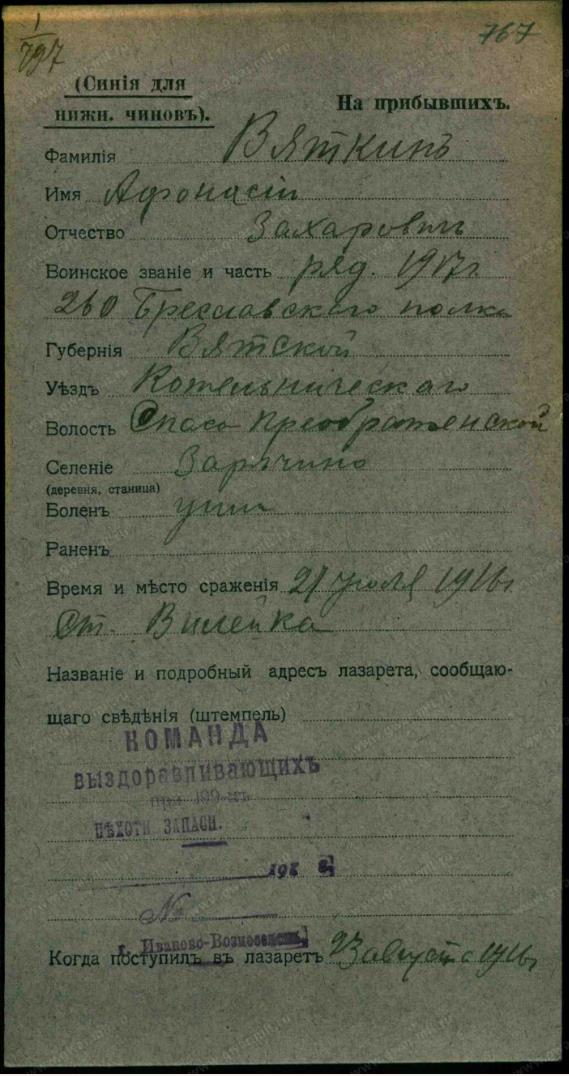 1/797
767
(Синія для
нижн. чиновъ).
На прибывшихъ.
Фамилія Вяткинъ
Имя Афонасій
Отчество Захаровичъ
Воинское званіе и часть ряд. 1917г
260 Бреславскаго полка
Губернія Вятской
Уѣздъ Котельническаго
Волость Спасо Преображенской
Селеніе
(деревня, станица)
Боленъ
Раненъ
Время и мѣсто сраженія 21 Іюля 1916г
Ст. Вилейка
Названіе и подробный адресъ лазарета, сообщаю-
щаго свѣдѣнія (штемпель)
КОМАНДА
ВЫЗДОРАВЛИВАЮЩИХЪ
ПѢХОТН ЗАПАСН.
191 г.
№
г. Иваново-Вознесенскъ
Когда поступилъ въ лазаретъ 23 августа 1916г